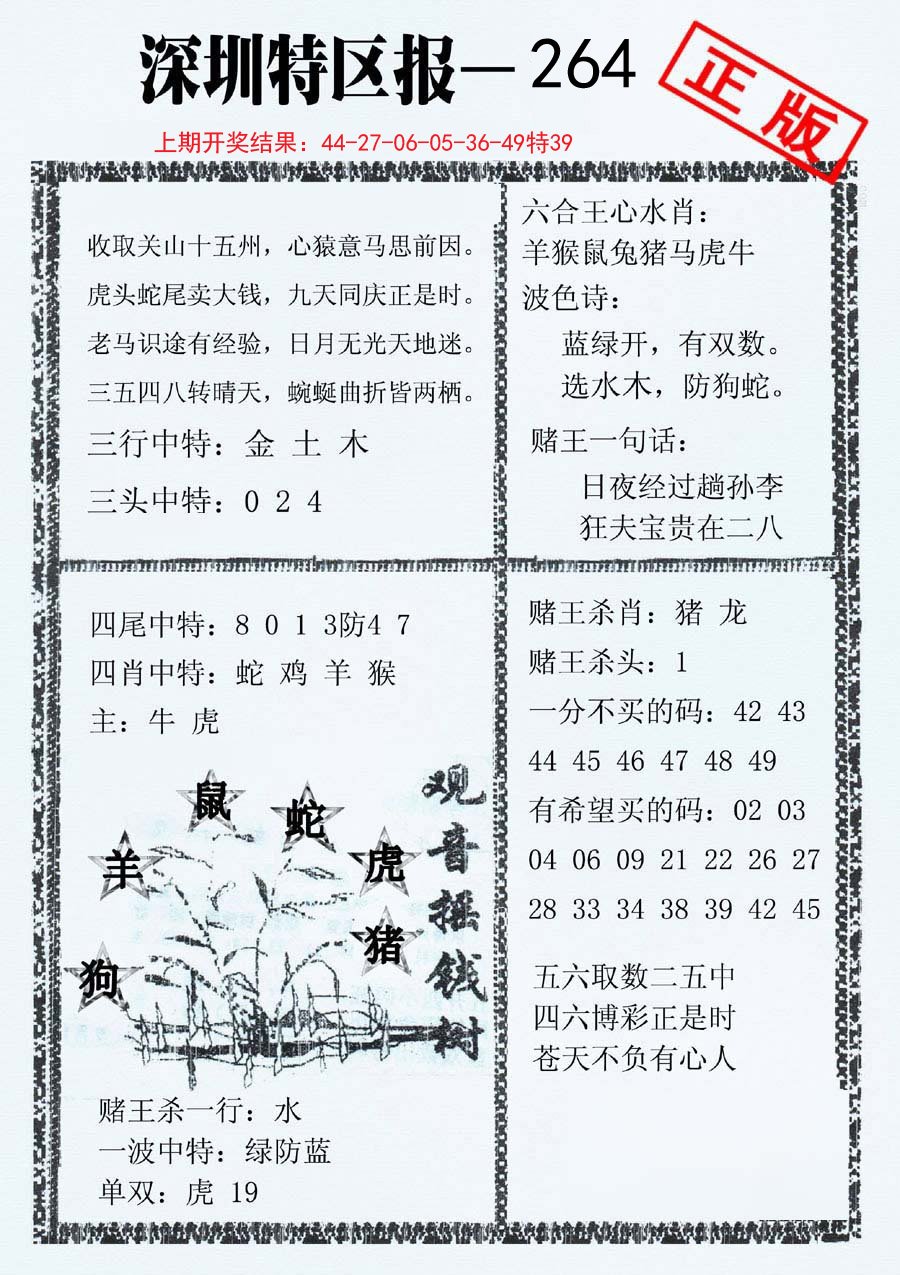 深圳特区报—264
正版
上期开奖结果：44-27-06-05-36-49特39
收取关山十五州，心猿意马思前因。
虎头蛇尾卖大钱，九天同庆正是时。
老马识途有经验，日月无光天地迷。
三五四八转晴天，蜿蜒曲折皆两栖。
三行中特：金 土 木
三头中特：0 2 4
六合王心水肖：
羊猴鼠兔猪马虎牛
波色诗：
蓝绿开，有双数。
选水木，防狗蛇。
赌王一句话：
日夜经过趟孙李
狂夫宝贵在二八
四尾中特：8 0 1 3防4 7
四肖中特：蛇 鸡 羊 猴
主：牛 虎
鼠
蛇
羊
虎
猪
狗
观音摇钱树
赌王杀一行：水
一波中特：绿防蓝
单双：虎 19
赌王杀肖：猪 龙
赌王杀头：1
一分不买的码：42 43
44 45 46 47 48 49
有希望买的码：02 03
04 06 09 21 22 26 27
28 33 34 38 39 42 45
五六取数二五中
四六博彩正是时
苍天不负有心人